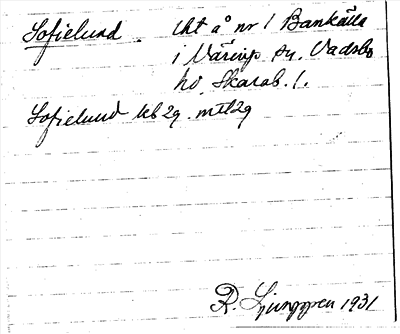 Sofielund. Lht å nr 1 Bankälla
i Väring sn. Vadsbo
hd, Skarab. l.
Sofielund kb 2g. mtl 2g
R. Ljunggren 1931